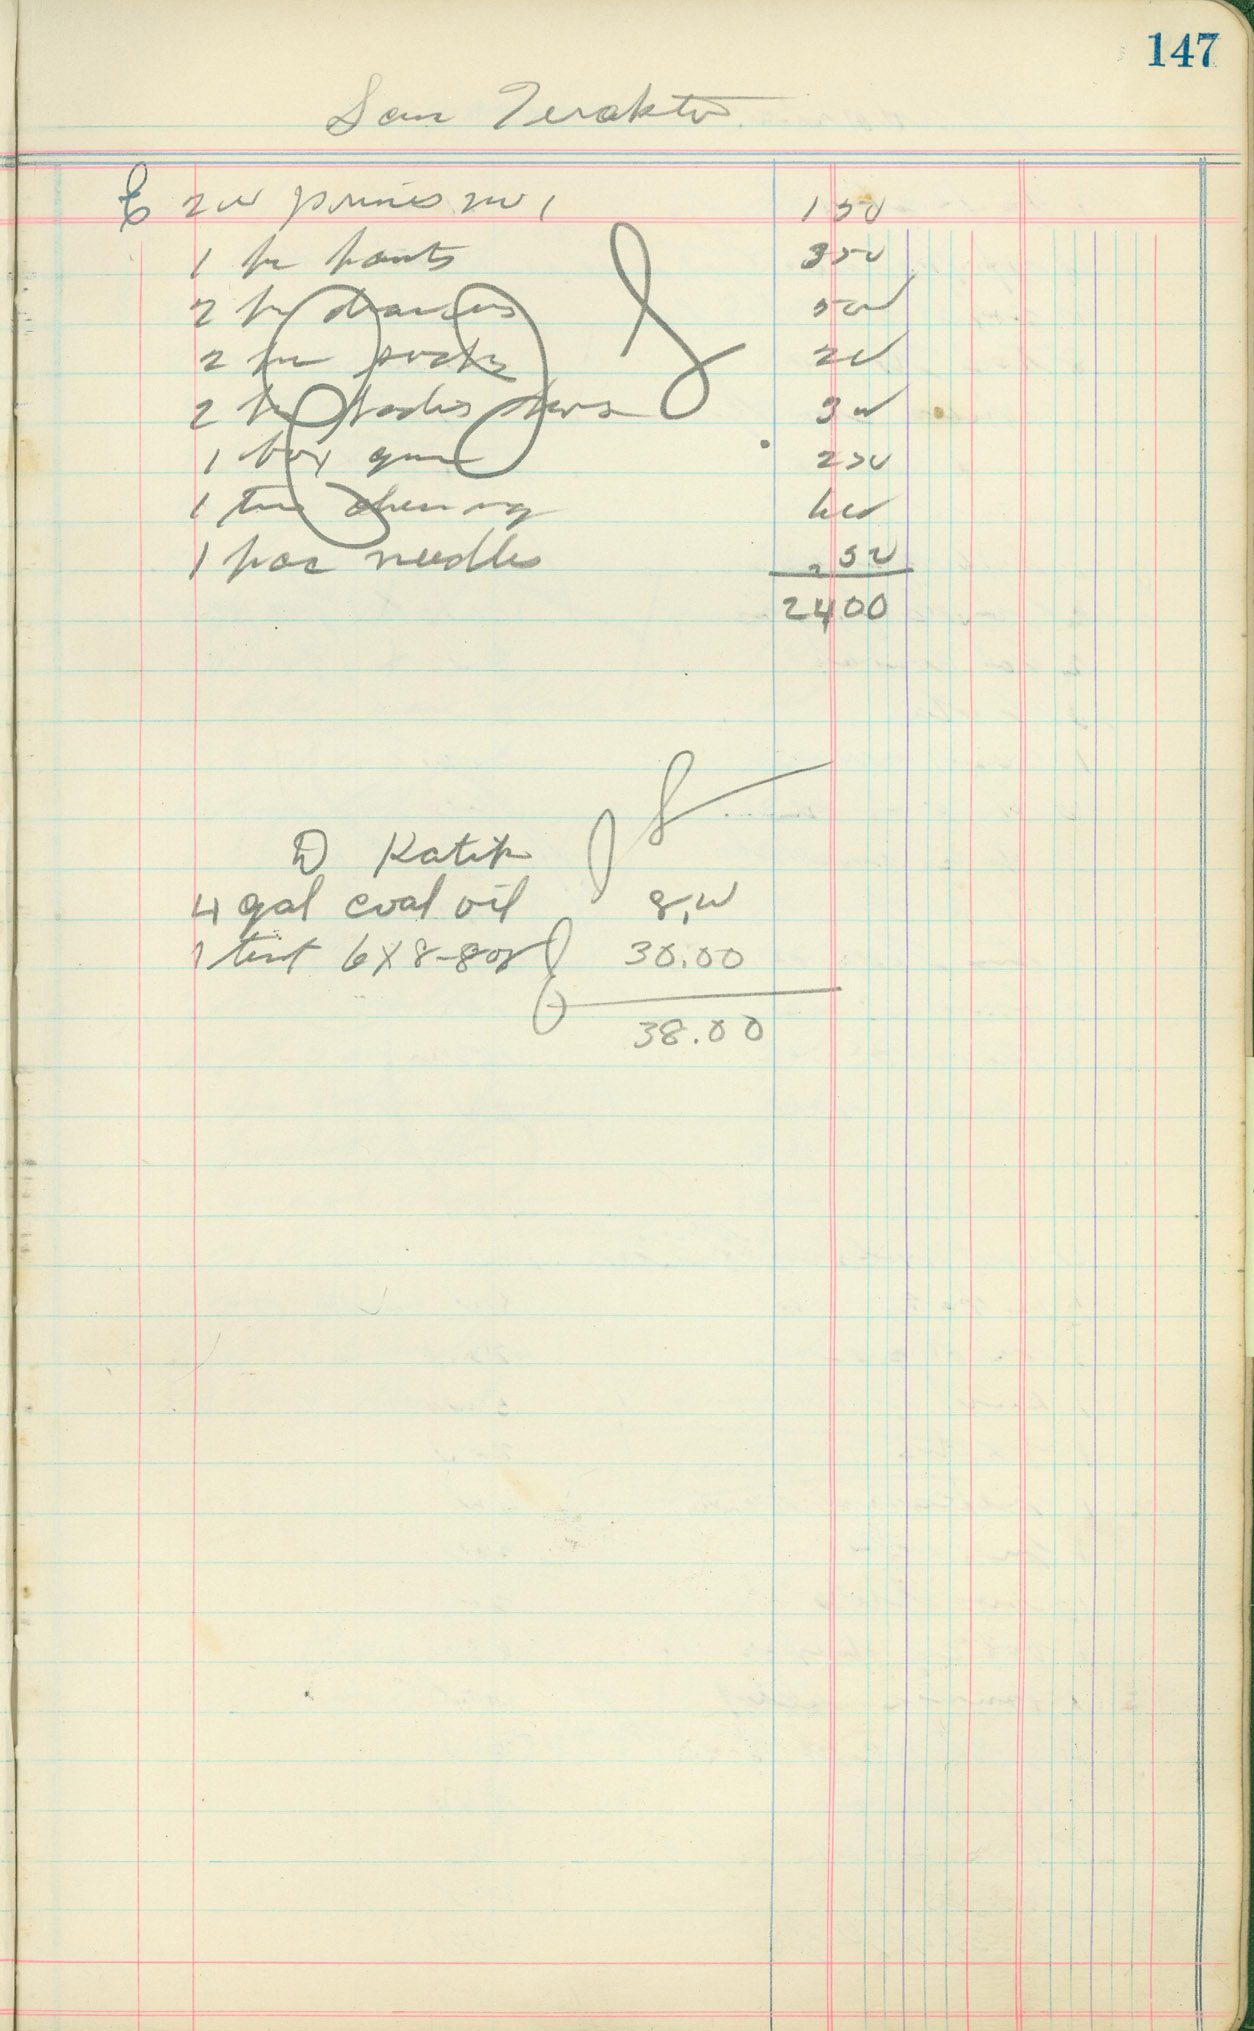 147
Sam
2 00 prunes 1 50
1 pr pants 3 50
2 pr 5 00
2 pr socks 2 00
2 pr ladies 3 00
1 box gum 2 50
1
1 pac needles 50
24 00
D Katip
4 gal coal oil 8.00
1 tent 6X8-8oz 30.00
38.00